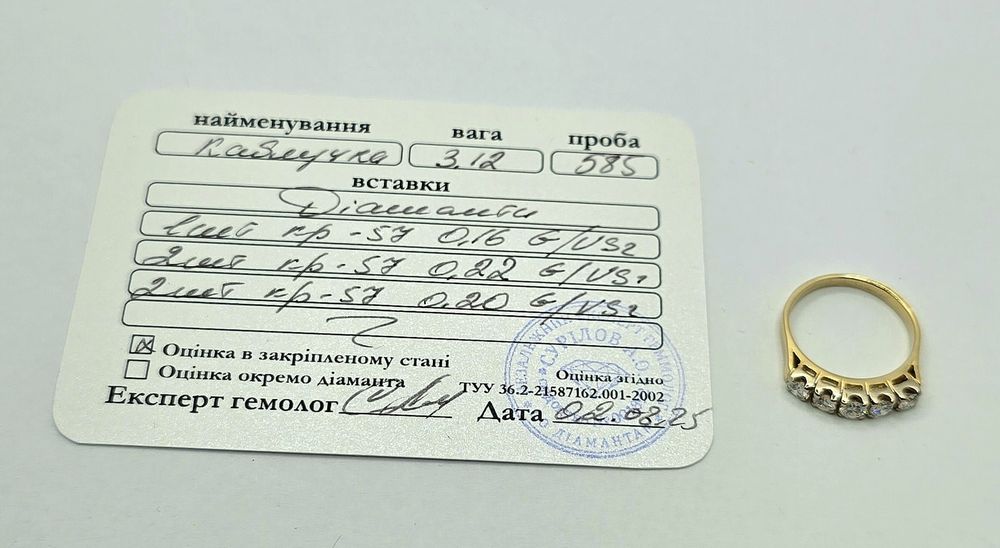 найменування вага проба
Каблучка 3,12 585
вставки
Діаманти
1шт кр-57 0,16 G/VS2
2шт кр-57 0,22 G/VS1
2шт кр-57 0,20 G/VS2
Оцінка в закріпленому стані
Оцінка окремо діаманта
Оцінка згідно
ТУУ 36.2-21587162.001-2002
Експерт гемолог Дата 02.08.25
СУРІЛОВ А.О.